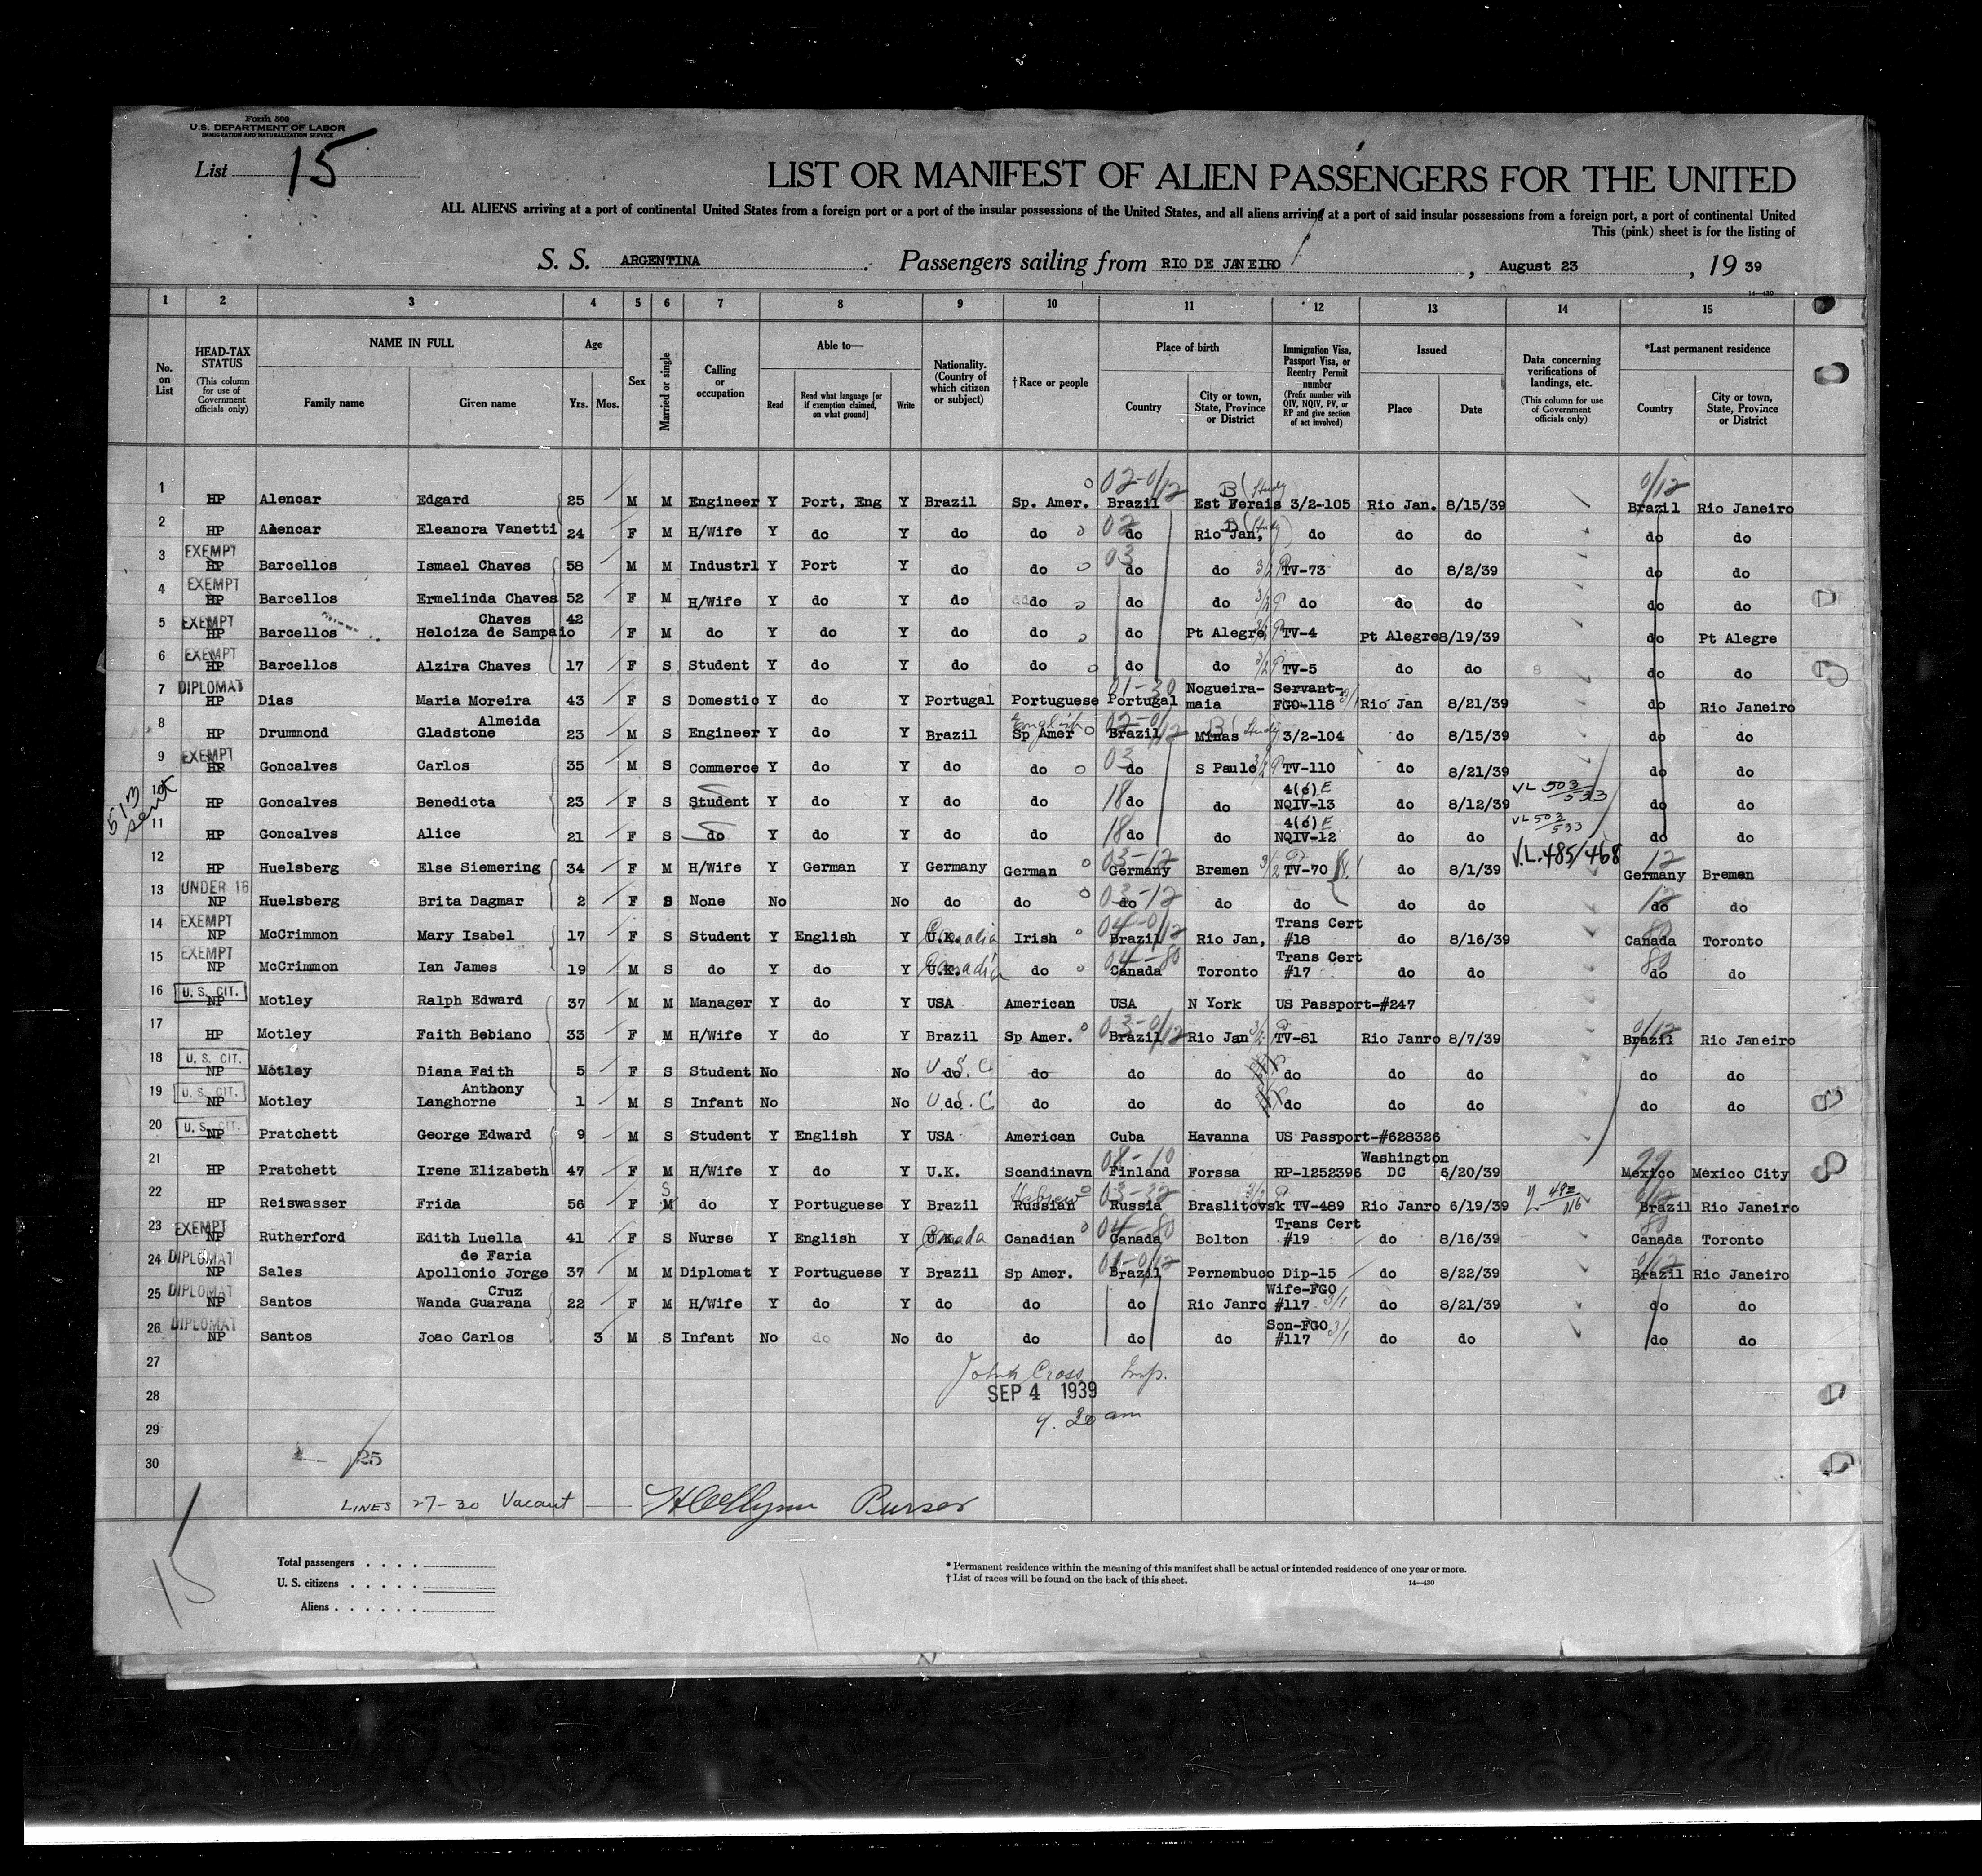 Form 500
U.S. DEPARTMENT OF LABOR
IMMIGRATION AND NATURALIZATION SERVICE
List 15
LIST OR MANIFEST OF ALIEN PASSENGERS FOR THE UNITED
ALL ALIENS arriving at a port of continental United States from a foreign port or a port of the insular possessions of the United States, and all aliens arriving at a port of said insular possessions from a foreign port, a port of continental United
This (pink) sheet is for the listing of
S. S. ARGENTINA. Passengers sailing from RIO DE JANEIRO, August 23, 19 39
14—430
1 2 3 4 5 6 7 8 9 10 11 12 13 14 15
No. on List
HEAD-TAX STATUS (This column for use of Government officials only)
NAME IN FULL Family name Given name
Age Yrs. Mos.
Sex
Married or single
Calling or occupation
Able to— Read Read what language [or if exemption claimed, on what ground] Write
Nationality. (Country of which citizen or subject)
†Race or people
Place of birth Country City or town, State, Province or District
Immigration Visa, Passport Visa, or Reentry Permit number (Prefix number with QIV, NQIV, PV, or RP and give section of act involved)
Issued Place Date
Data concerning verifications of landings, etc. (This column for use of Government officials only)
*Last permanent residence Country City or town, State, Province or District
1 HP Alencar Edgard 25 M M Engineer Y Port, Eng Y Brazil Sp. Amer. 02-0/12 Brazil Est Ferais B (Study 3/2-105 Rio Jan. 8/15/39 0/12 Brazil Rio Janeiro
2 HP Alencar Eleanora Vanetti 24 F M H/Wife Y do Y do do 02 do Rio Jan, B (Study) do do do do do
3 EXEMPT HP Barcellos Ismael Chaves 58 M M Industrl Y Port Y do do 03 do do 3/2 P TV-73 do 8/2/39 do do
4 EXEMPT HP Barcellos Ermelinda Chaves 52 F M H/Wife Y do Y do do do do 3/2 P do do do do do
5 EXEMPT HP Barcellos Chaves Heloiza de Sampaio 42 F M do Y do Y do do do Pt Alegre 3/2 P TV-4 Pt Alegre 8/19/39 do Pt Alegre
6 EXEMPT HP Barcellos Alzira Chaves 17 F S Student Y do Y do do do do 3/2 P TV-5 do do 8 do do
7 DIPLOMAT HP Dias Maria Moreira 43 F S Domestic Y do Y Portugal Portuguese 01-30 Portugal Nogueira-maia Servant-FGO-118 3/1 Rio Jan 8/21/39 do Rio Janeiro
8 HP Drummond Almeida Gladstone 23 M S Engineer Y do Y Brazil English Sp Amer 02-0/12 Brazil Minas B (Study 3/2-104 do 8/15/39 do do
9 EXEMPT HP Goncalves Carlos 35 M S Commerce Y do Y do do 03 do S Paulo 3/2 P TV-110 do 8/21/39 do do
10 HP Goncalves Benedicta 23 F S Student Y do Y do do 18 do do 4(c) E NQIV-13 do 8/12/39 VL 503/533 do do
11 HP Goncalves Alice 21 F S do Y do Y do do 18 do do 4(c) E NQIV-12 do do VL 503/533 do do
12 HP Huelsberg Else Siemering 34 F M H/Wife Y German Y Germany German 03-12 Germany Bremen 3/2 P TV-70 do 8/1/39 V.L. 485/468 12 Germany Bremen
13 UNDER 16 NP Huelsberg Brita Dagmar 2 F S None No No do do 03-12 do do do do do 12 do do
14 EXEMPT NP McCrimmon Mary Isabel 17 F S Student Y English Y U.K. Irish 04-0/12 Brazil Rio Jan, Trans Cert #18 do 8/16/39 80 Canada Toronto
15 EXEMPT NP McCrimmon Ian James 19 M S do Y do Y U.K. do 04-80 Canada Toronto Trans Cert #17 do do 80 do do
16 U. S. CIT. NP Motley Ralph Edward 37 M M Manager Y do Y USA American USA N York US Passport-#247
17 HP Motley Faith Bebiano 33 F M H/Wife Y do Y Brazil Sp Amer. 03-0/12 Brazil Rio Jan 3/2 P TV-81 Rio Janro 8/7/39 0/12 Brazil Rio Janeiro
18 U. S. CIT. NP Motley Diana Faith 5 F S Student No No do U.S.C do do do do do do do do
19 U. S. CIT. NP Motley Anthony Langhorne 1 M S Infant No No do U.S.C do do do do do do do do
20 U. S. CIT. NP Pratchett George Edward 9 M S Student Y English Y USA American Cuba Havanna US Passport-#628326
21 HP Pratchett Irene Elizabeth 47 F M H/Wife Y do Y U.K. Scandinavn 08-10 Finland Forssa RP-1252396 Washington DC 6/20/39 99 Mexico Mexico City
22 HP Reiswasser Frida 56 F M S do Y Portuguese Y Brazil Hebrew Russian 03-32 Russia Braslitovsk 3/2 P TV-489 Rio Janro 6/19/39 492/116 0/12 Brazil Rio Janeiro
23 EXEMPT NP Rutherford Edith Luella 41 F S Nurse Y English Y U.K. Canada Canadian 04-80 Canada Bolton Trans Cert #19 do 8/16/39 80 Canada Toronto
24 DIPLOMAT NP Sales de Faria Apollonio Jorge 37 M M Diplomat Y Portuguese Y Brazil Sp Amer. 01-0/12 Brazil Pernembuco Dip-15 do 8/22/39 0/12 Brazil Rio Janeiro
25 DIPLOMAT NP Santos Cruz Wanda Guarana 22 F M H/Wife Y do Y do do do Rio Janro Wife-FGO #117 3/1 do 8/21/39 do do
26 DIPLOMAT NP Santos Joao Carlos 3 M S Infant No do No do do do do Son-FGO #117 3/1 do do do do
51 m sent
27
28
29
30
John Cross Insp.
SEP 4 1939
9.20 am
25
LINES 27-30 Vacant — Purser
15
Total passengers . . . .
U. S. citizens . . . . .
Aliens . . . . . .
* Permanent residence within the meaning of this manifest shall be actual or intended residence of one year or more.
† List of races will be found on the back of this sheet.
14—430